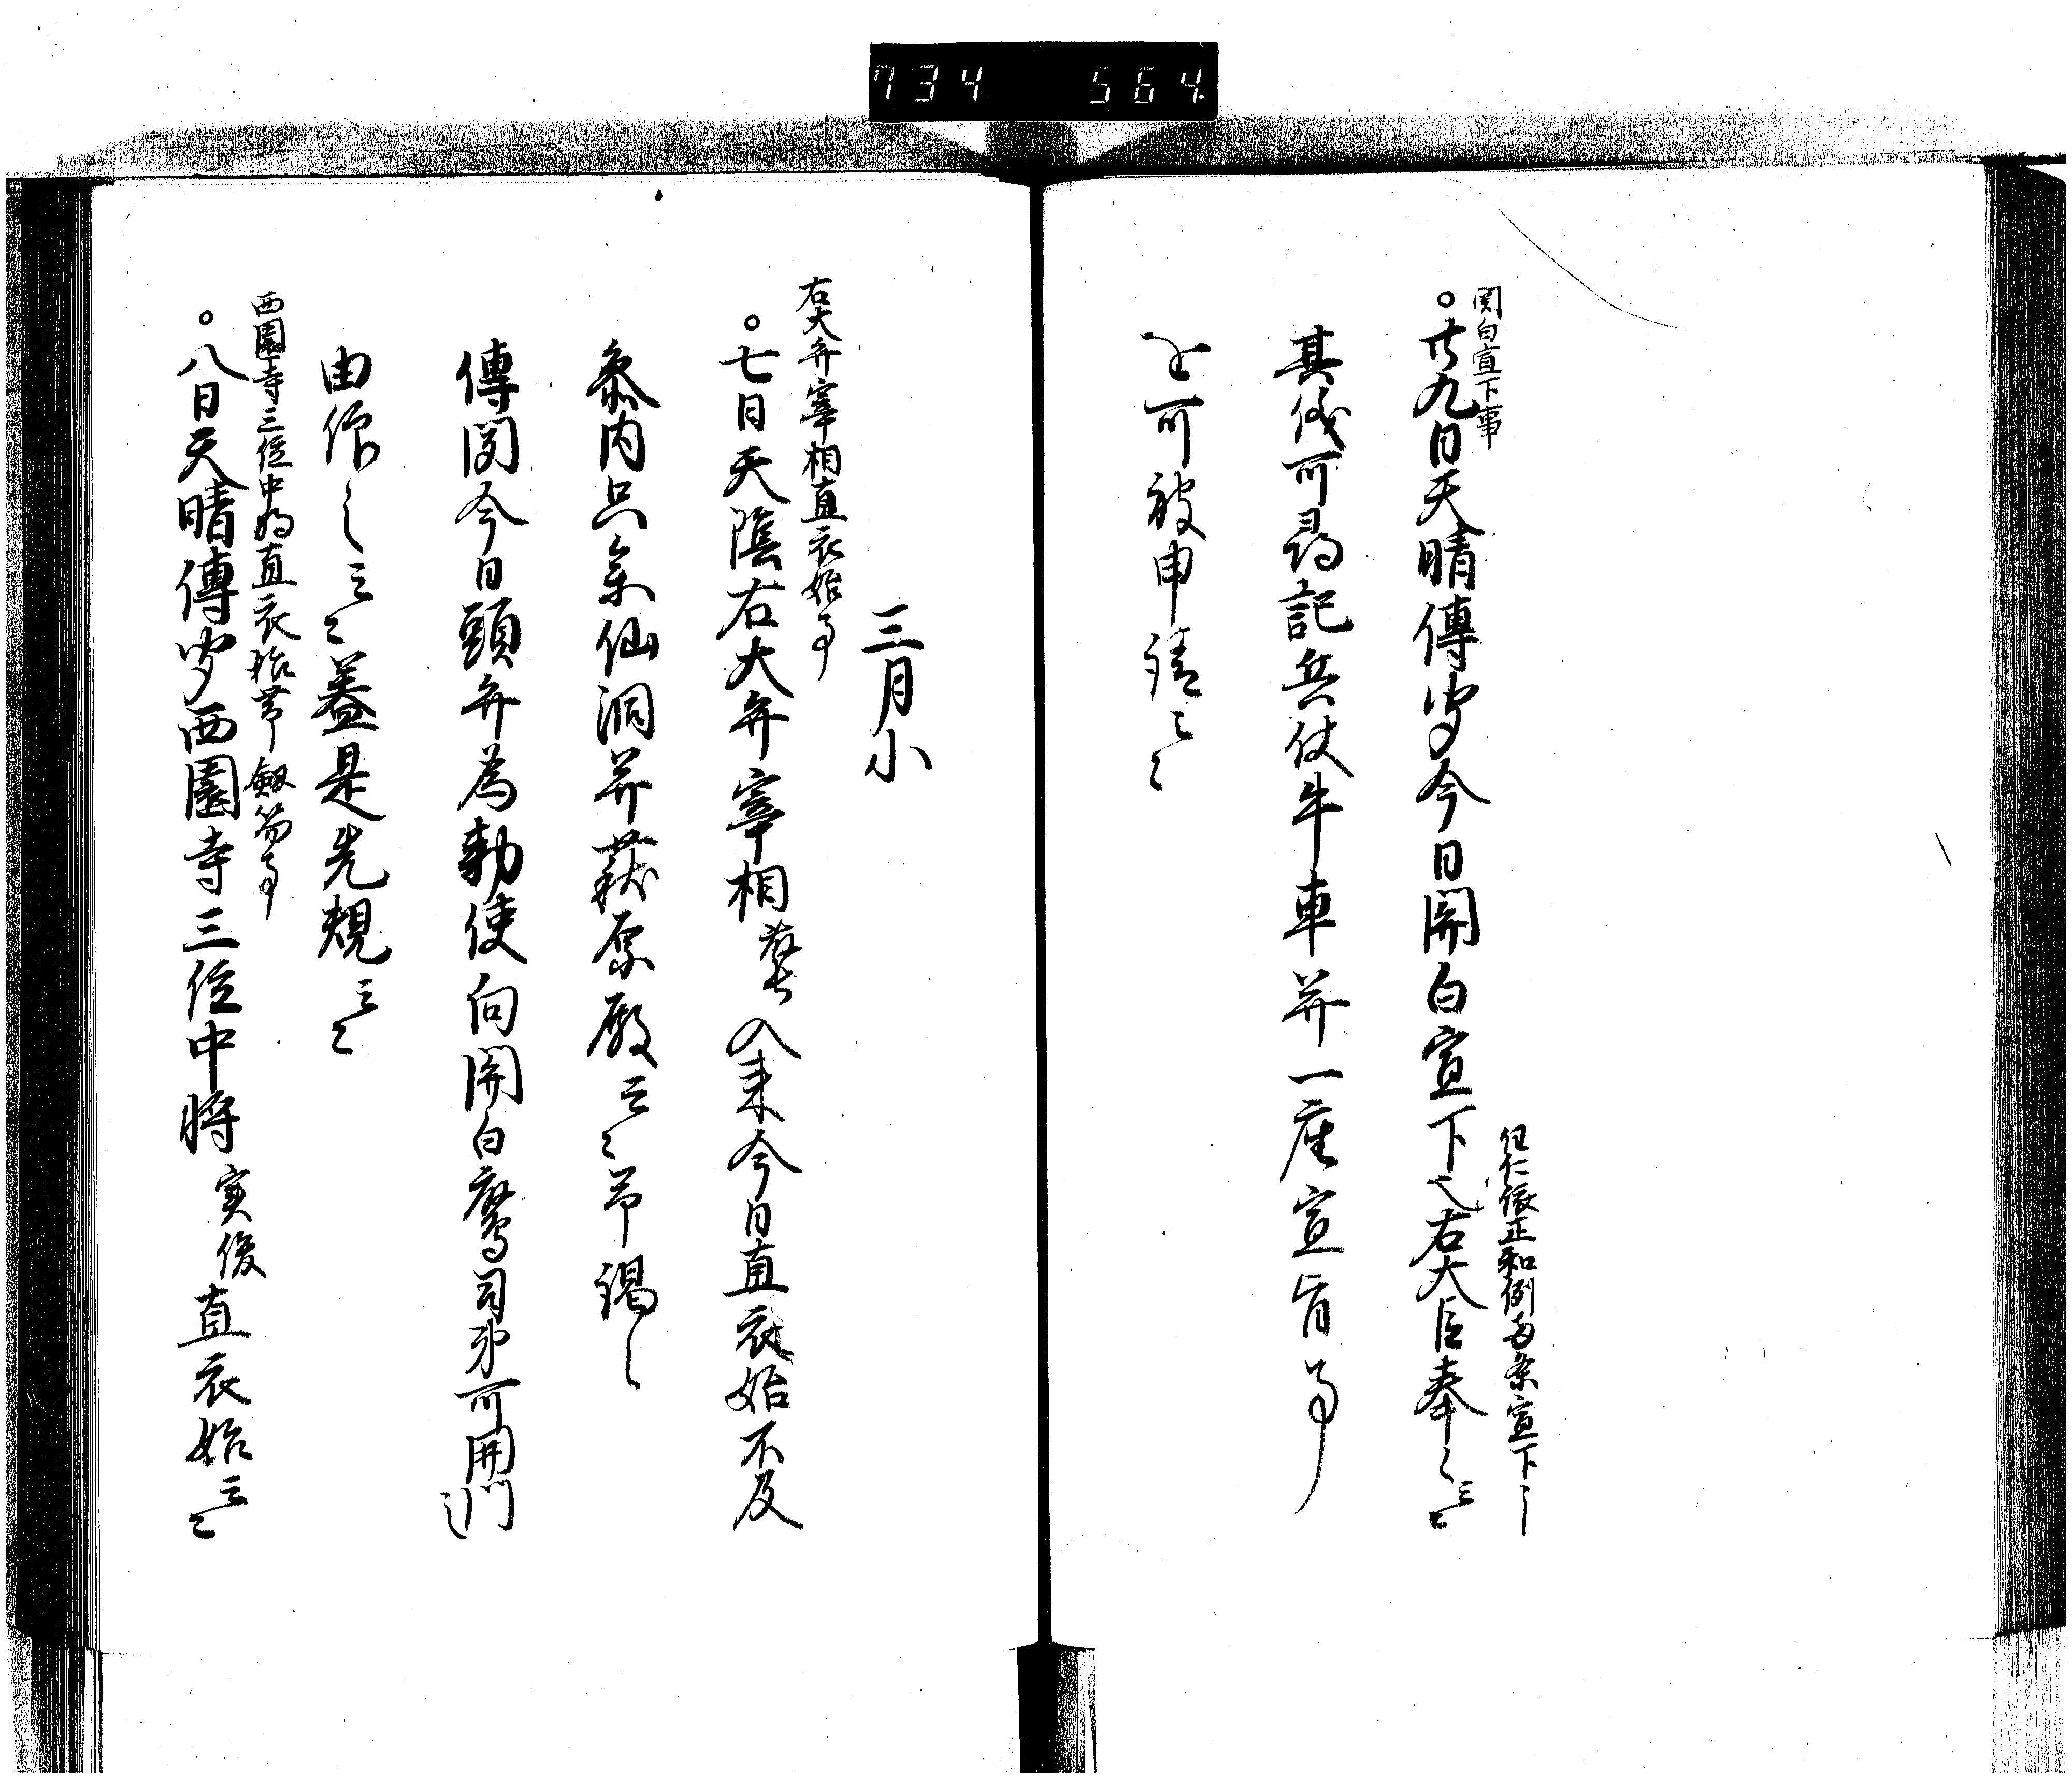 734 564
関白宣下事
○廿九日天晴傳聞今日関白宣下也右大臣奉之云々
任仁依正和例両条宣下之
其儀可尋記兵仗牛車并一座宣旨事
追可被申請云々
三月小
右大弁宰相直衣始事
○七日天陰右大弁宰相 入来今日直衣始不及
参内只参仙洞并萩原殿云々帯鍚之
傳聞今日頭弁為勅使向関白鷹司弟可開門
由仰之云々蓋是先規云々
西園寺三位中将直衣始帯劔笏事
○八日天晴傳聞西園寺三位中将実俊直衣始云々